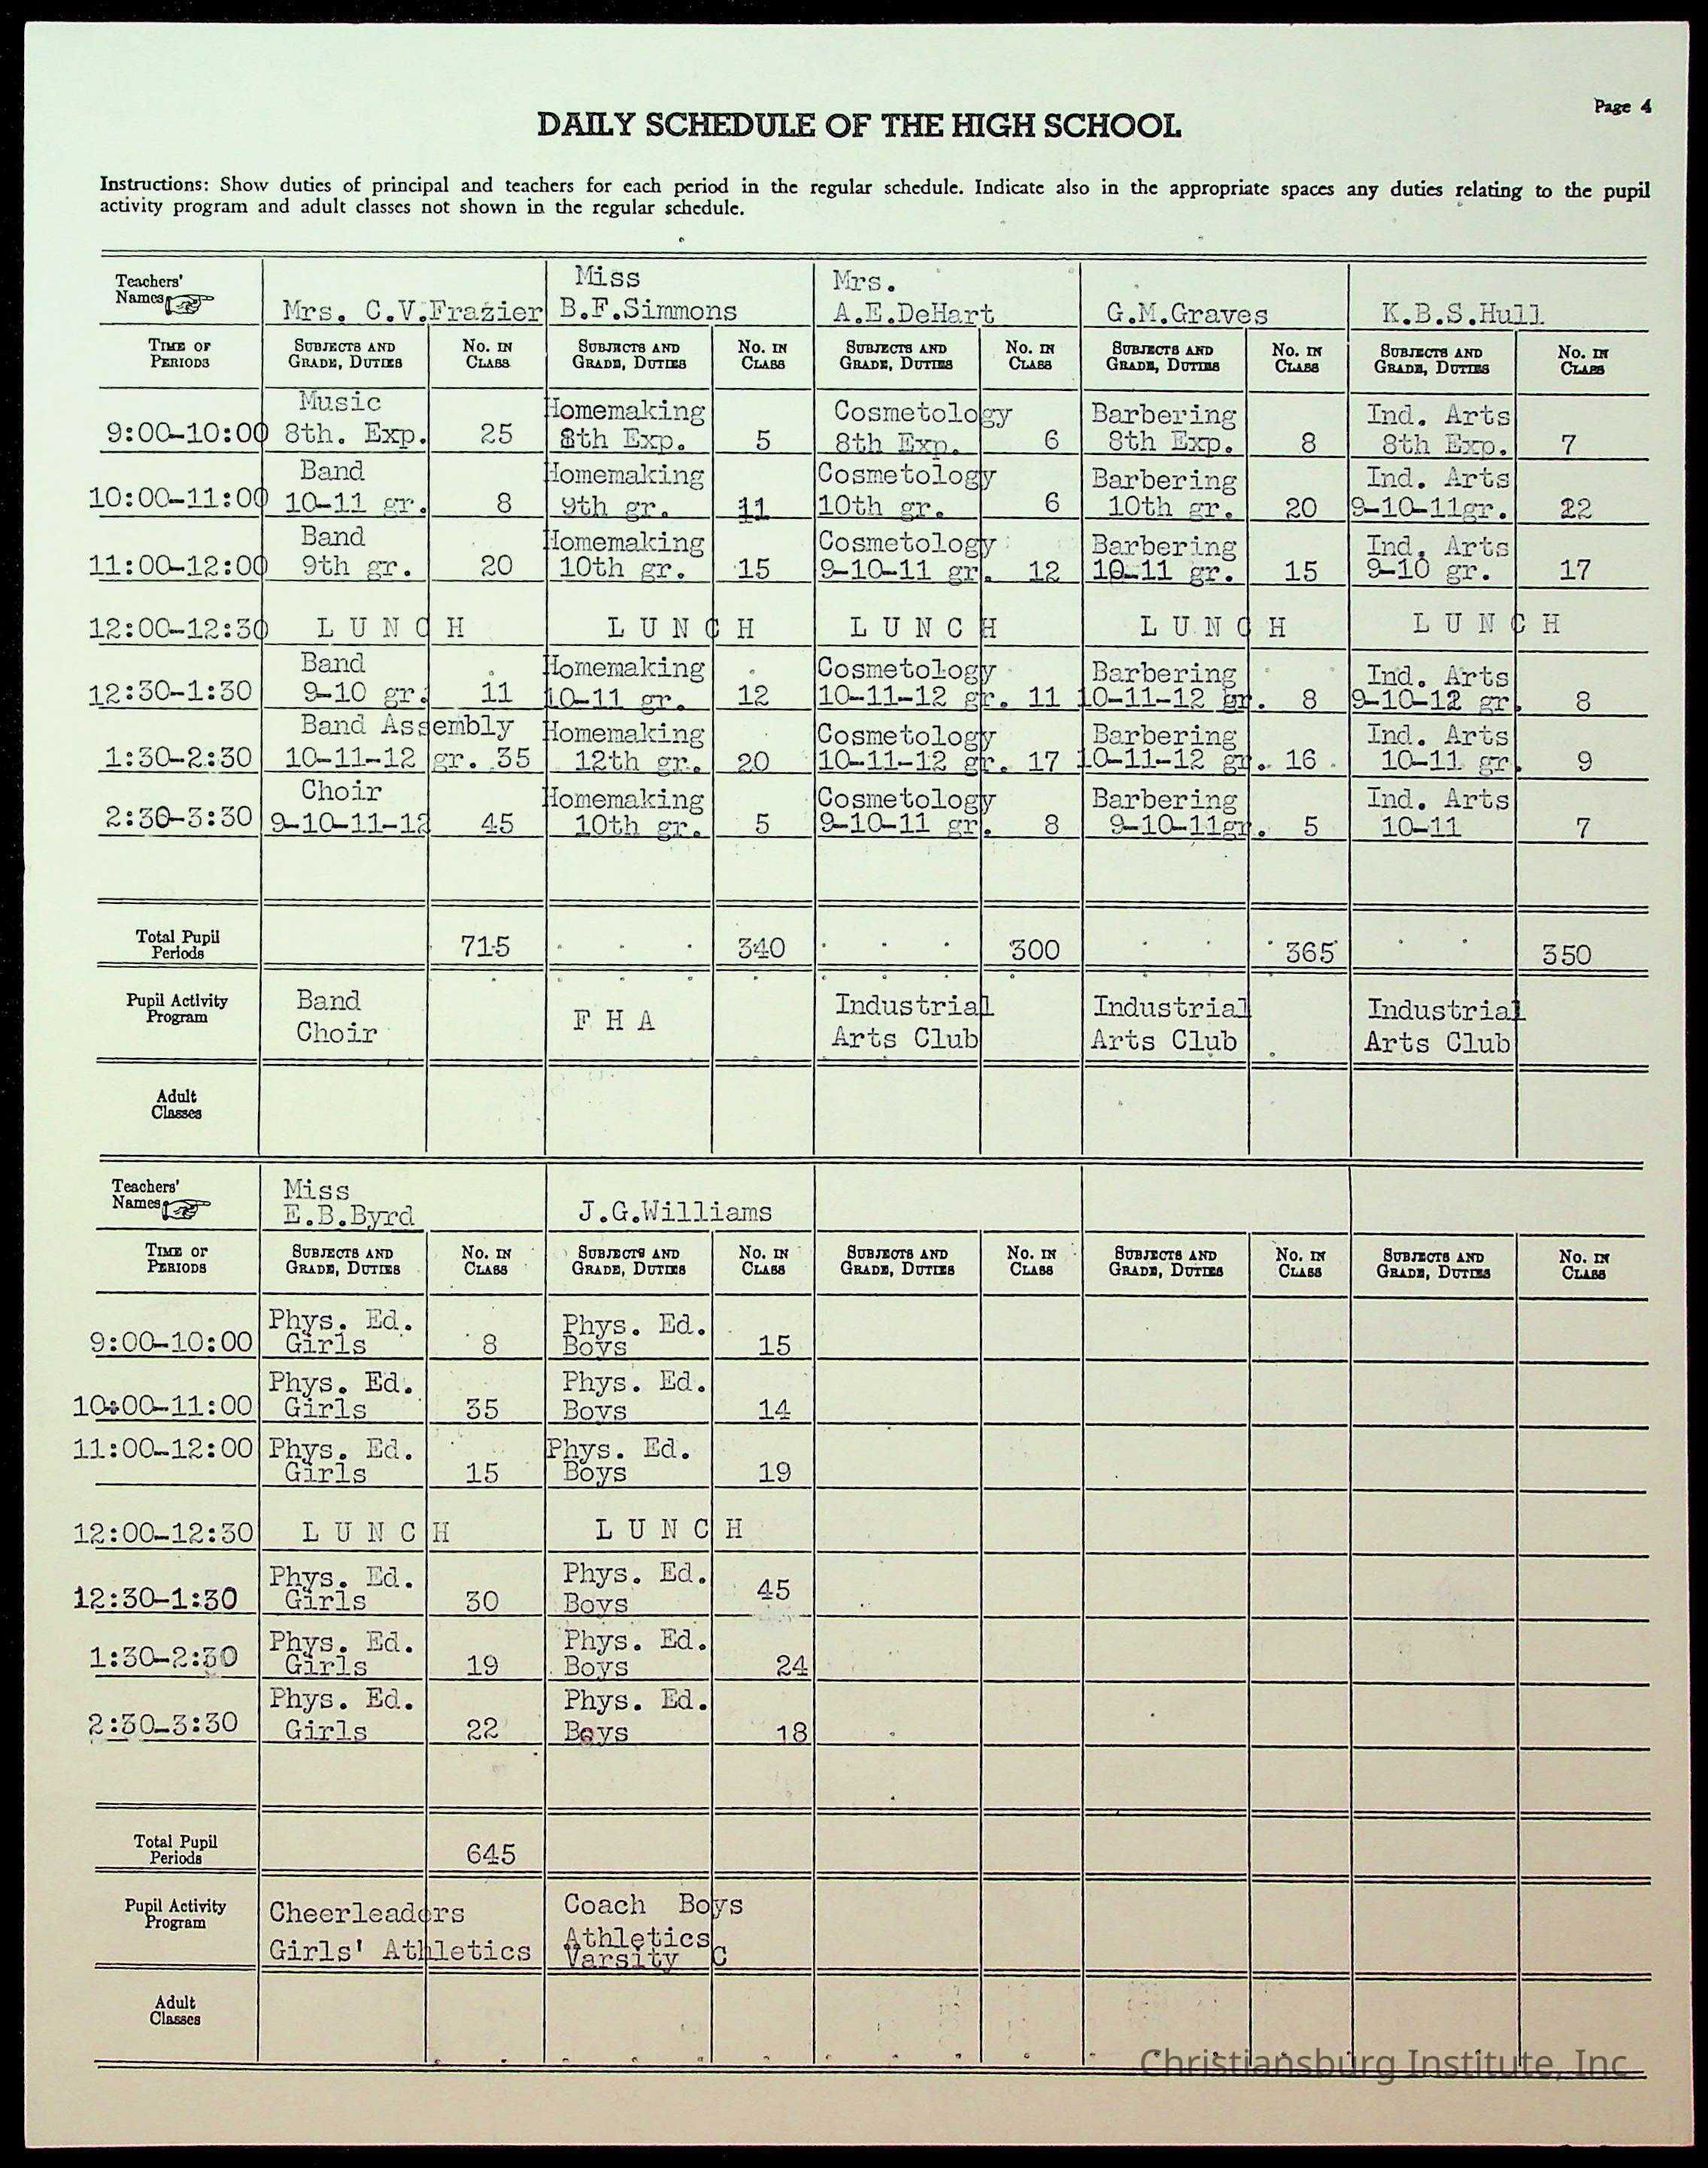 Page 4
DAILY SCHEDULE OF THE HIGH SCHOOL
Instructions: Show duties of principal and teachers for each period in the regular schedule. Indicate also in the appropriate spaces any duties relating to the pupil
activity program and adult classes not shown in the regular schedule.
Teachers' Names Mrs. C.V.Frazier Miss B.F.Simmons Mrs. A.E.DeHart G.M.Graves K.B.S.Hull
TIME OF PERIODS SUBJECTS AND GRADE, DUTIES No. IN CLASS SUBJECTS AND GRADE, DUTIES No. IN CLASS SUBJECTS AND GRADE, DUTIES No. IN CLASS SUBJECTS AND GRADE, DUTIES No. IN CLASS SUBJECTS AND GRADE, DUTIES No. IN CLASS
Music Homemaking Cosmetology Barbering Ind. Arts
9:00-10:00 8th. Exp. 25 8th Exp. 5 8th Exp. 6 8th Exp. 8 8th Exp. 7
Band Homemaking Cosmetology Barbering Ind. Arts
10:00-11:00 10-11 gr. 8 9th gr. 11 10th gr. 6 10th gr. 20 9-10-11gr. 22
Band Homemaking Cosmetology Barbering Ind. Arts
11:00-12:00 9th gr. 20 10th gr. 15 9-10-11 gr. 12 10-11 gr. 15 9-10 gr. 17
12:00-12:30 L U N C H L U N C H L U N C H L U N C H L U N C H
Band Homemaking Cosmetology Barbering Ind. Arts
12:30-1:30 9-10 gr. 11 10-11 gr. 12 10-11-12 gr. 11 10-11-12 gr. 8 9-10-12 gr. 8
Band Assembly Homemaking Cosmetology Barbering Ind. Arts
1:30-2:30 10-11-12 gr. 35 12th gr. 20 10-11-12 gr. 17 10-11-12 gr. 16 10-11 gr. 9
Choir Homemaking Cosmetology Barbering Ind. Arts
2:30-3:30 9-10-11-12 45 10th gr. 5 9-10-11 gr. 8 9-10-11gr. 5 10-11 7
Total Pupil Periods 715 340 300 365 350
Pupil Activity Program Band Industrial Industrial Industrial
Choir F H A Arts Club Arts Club Arts Club
Adult Classes
Teachers' Names Miss E.B.Byrd J.G.Williams
TIME OF PERIODS SUBJECTS AND GRADE, DUTIES No. IN CLASS SUBJECTS AND GRADE, DUTIES No. IN CLASS SUBJECTS AND GRADE, DUTIES No. IN CLASS SUBJECTS AND GRADE, DUTIES No. IN CLASS SUBJECTS AND GRADE, DUTIES No. IN CLASS
Phys. Ed. Phys. Ed.
9:00-10:00 Girls 8 Boys 15
Phys. Ed. Phys. Ed.
10:00-11:00 Girls 35 Boys 14
11:00-12:00 Phys. Ed. Phys. Ed.
Girls 15 Boys 19
12:00-12:30 L U N C H L U N C H
Phys. Ed. Phys. Ed.
12:30-1:30 Girls 30 Boys 45
Phys. Ed. Phys. Ed.
1:30-2:30 Girls 19 Boys 24
Phys. Ed. Phys. Ed.
2:30-3:30 Girls 22 Boys 18
Total Pupil Periods 645
Pupil Activity Program Cheerleaders Coach Boys
Girls' Athletics Athletics
Varsity C
Adult Classes
Christiansburg Institute, Inc